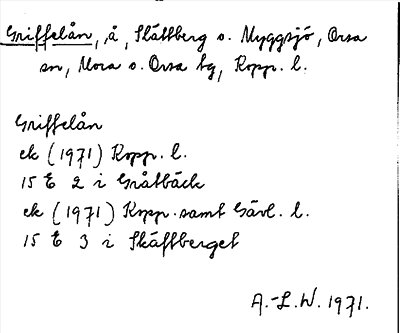 Griffelån, å, Skåltberg o. Myggsjö, Orsa
sn, Mora o. Orsa tg, Kopp. l.
Griffelån
ek (1971) Kopp. l.
15 E 2 i Gråtbäck
ek (1971) Kopp. samt Gävl. l.
15 E 3 i Skåltberget
A.-L.W. 1971.